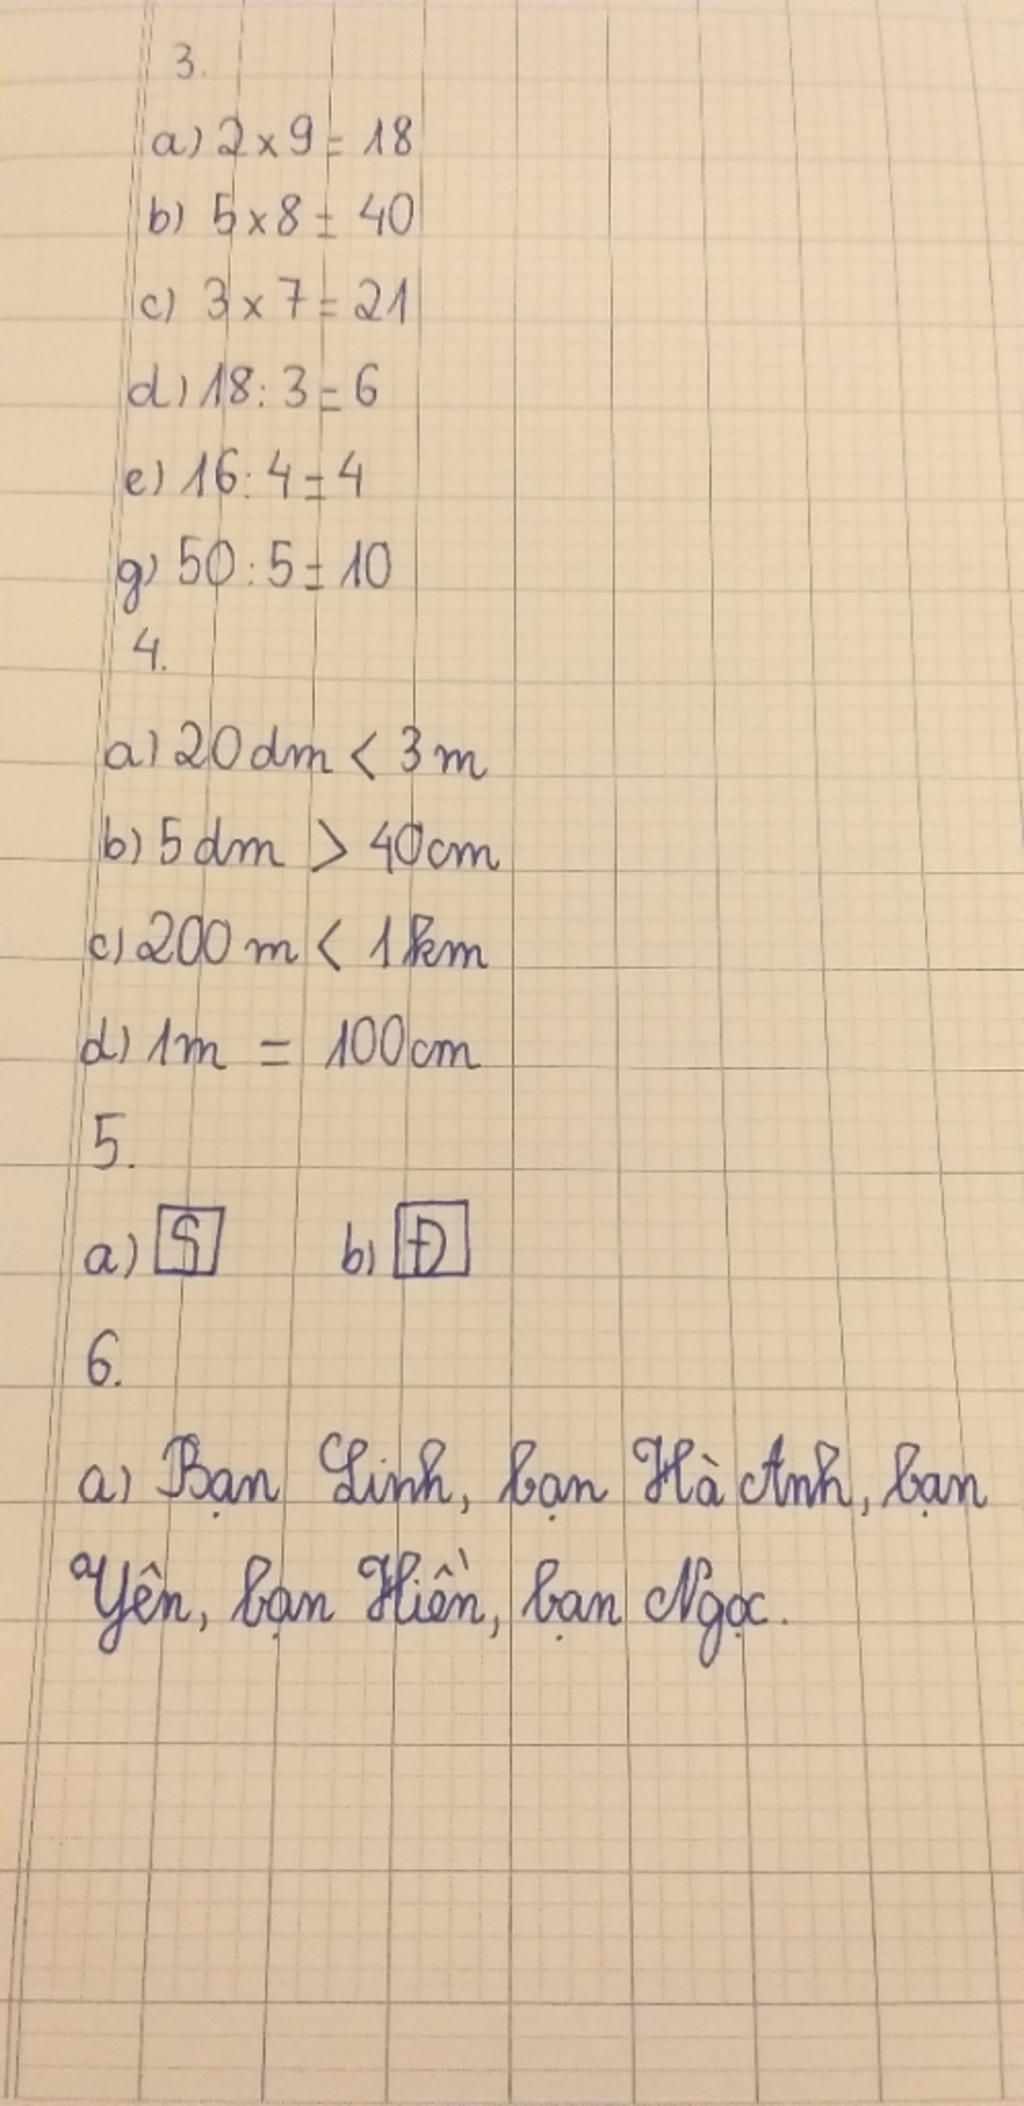 3.
a) 2 x 9 = 18
b) 5 x 8 = 40
c) 3 x 7 = 21
d) 18 : 3 = 6
e) 16 : 4 = 4
g) 50 : 5 = 10
4.
a) 20 dm < 3 m
b) 5 dm > 40 cm
c) 200 m < 1 km
d) 1m = 100 cm
5.
a) S b) Đ
6.
a) Bạn Linh, bạn Hà Anh, bạn
Yên, bạn Hiền, bạn Ngọc.